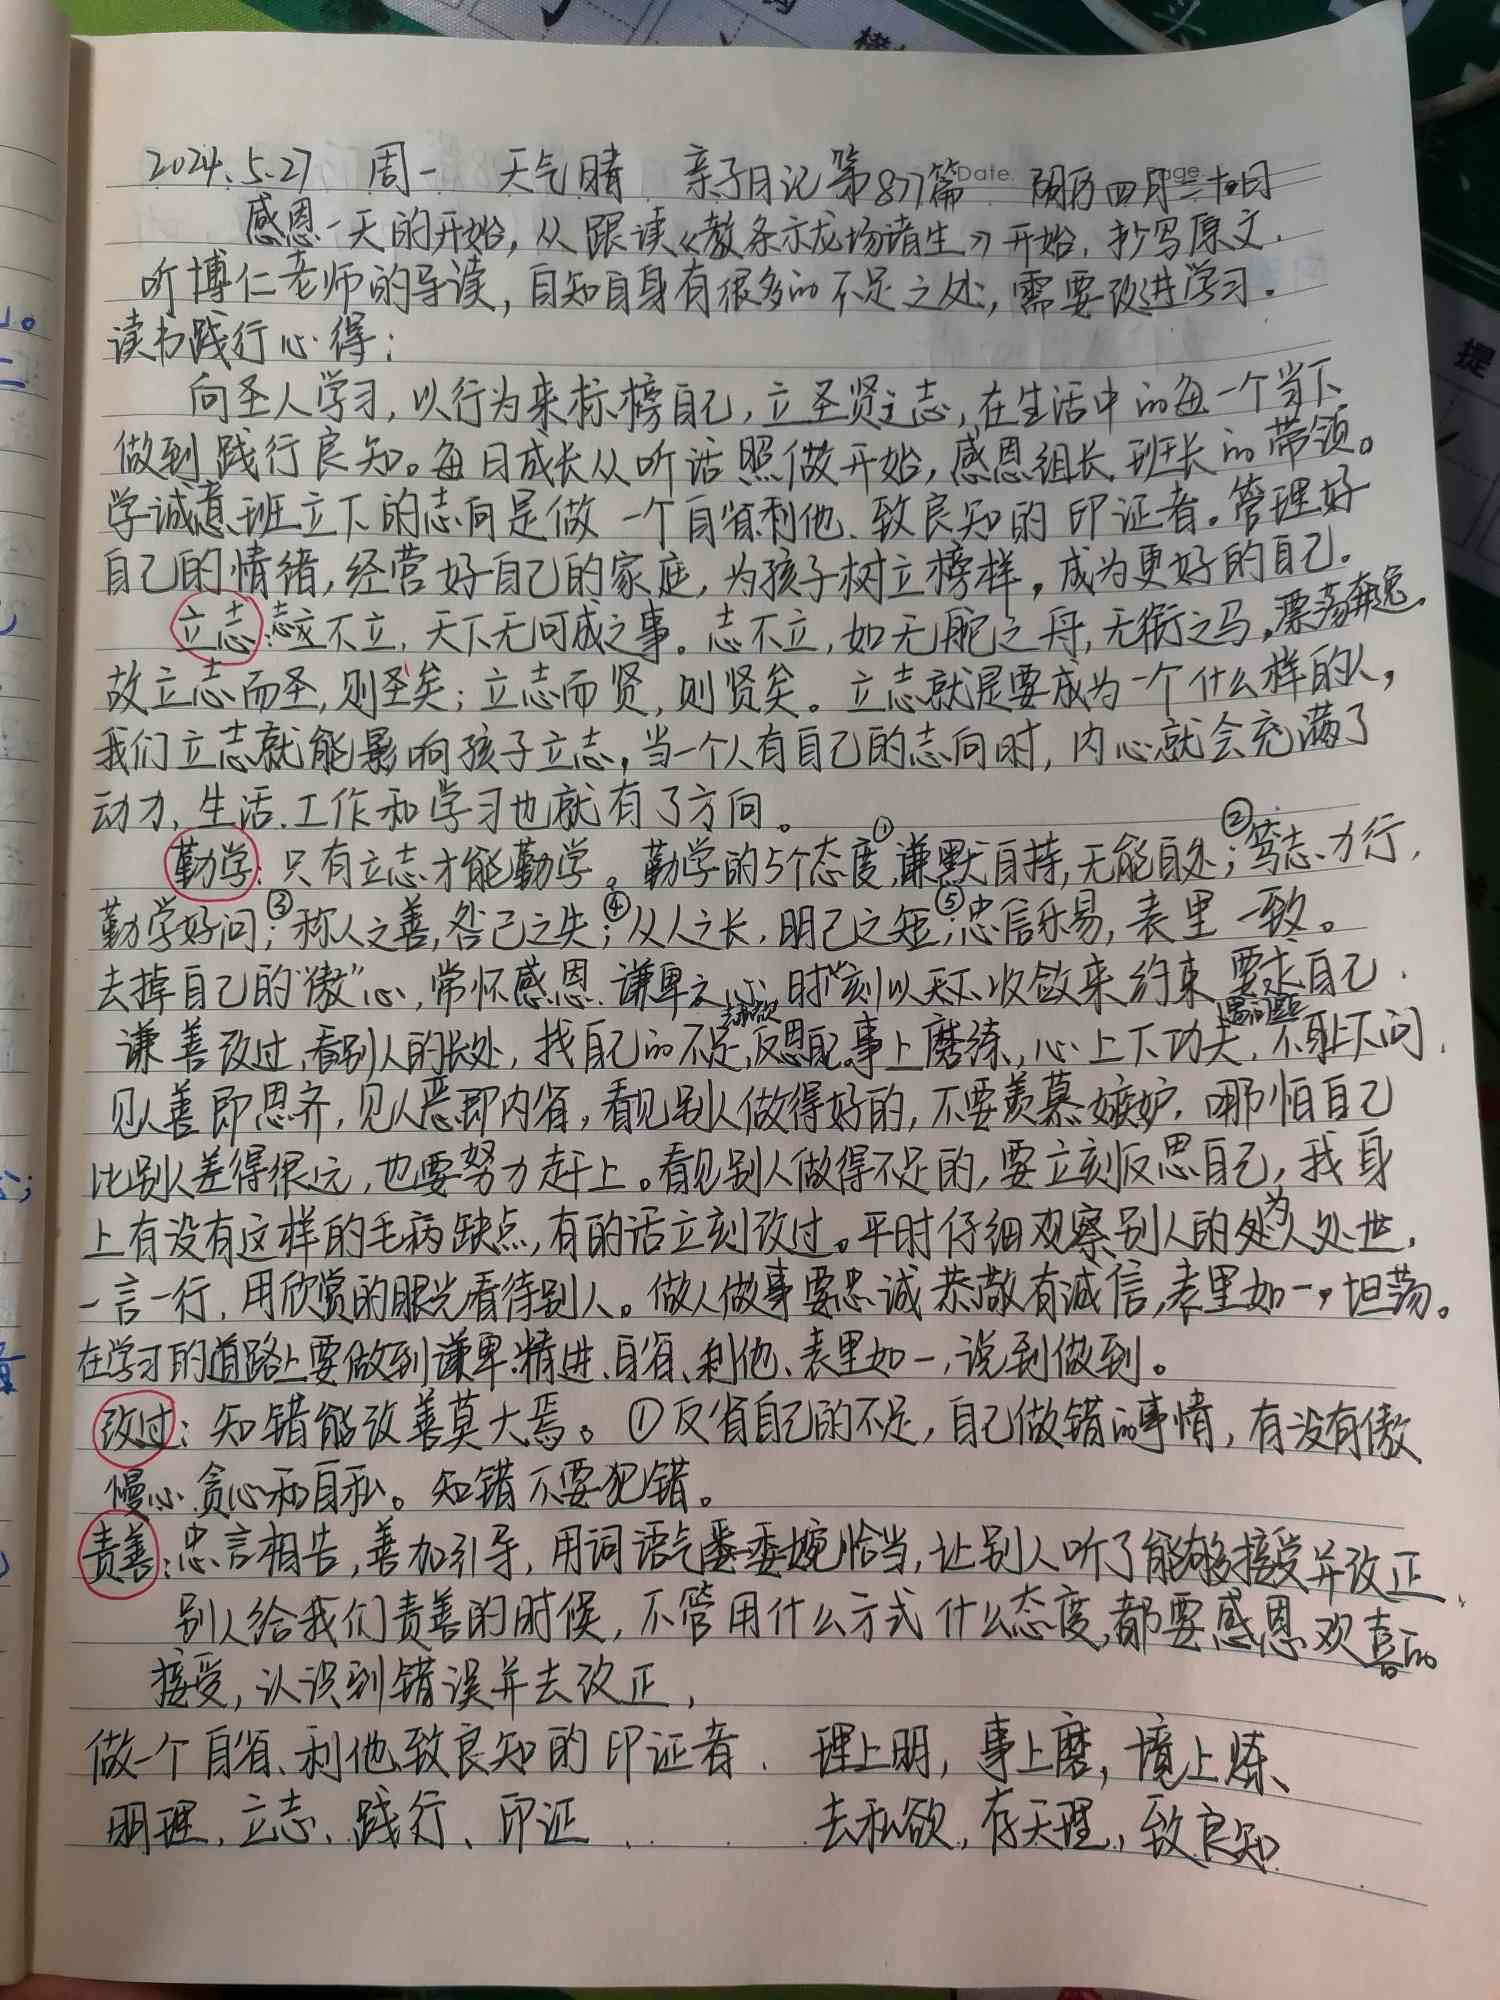 2024.5.27 周一 天气晴 亲子日记第877篇 Date. 阴历四月二十日
感恩一天的开始，从跟读《教条示龙场诸生》开始，抄写原文，
听博仁老师的导读，自知自身有很多的不足之处，需要改进学习。
读书践行心得：
向圣人学习，以行为来标榜自己，立圣贤之志，在生活中的每一个当下
做到践行良知。每日成长从听话照做开始，感恩组长、班长的带领。
学诚意班立下的志向是做一个自省利他、致良知的印证者。管理好
自己的情绪，经营好自己的家庭，为孩子树立榜样，成为更好的自己。
立志：志不立，天下无可成之事。志不立，如无舵之舟，无衔之马，漂荡奔逸。
故立志而圣，则圣矣；立志而贤，则贤矣。立志就是要成为一个什么样的人，
我们立志就能影响孩子立志，当一个人有自己的志向时，内心就会充满了
动力，生活、工作和学习也就有了方向。
勤学：只有立志才能勤学。勤学的5个态度，①谦默自持，无能自处；②笃志力行，
勤学好问；③称人之善，咎己之失；④从人之长，明己之短；⑤忠信乐易，表里一致。
去掉自己的“傲”心，常怀感恩、谦卑之心，时刻以天下收敛来约束要求自己，
谦善改过，看别人的长处，找自己的不足，去私欲 反思自己，事上磨练，心上下功夫，遇问题 不耻下问，
见人善即思齐，见人恶即内省，看见别人做得好的，不要羡慕嫉妒，哪怕自己
比别人差得很远，也要努力赶上。看见别人做得不足的，要立刻反思自己，我身
上有没有这样的毛病缺点，有的话立刻改过。平时仔细观察别人的为人处世，
一言一行，用欣赏的眼光看待别人。做人做事要忠诚恭敬有诚信，表里如一，坦荡。
在学习的道路上要做到谦卑、精进、自省、利他、表里如一，说到做到。
改过：知错能改善莫大焉。①反省自己的不足，自己做错的事情，有没有傲
慢心、贪心和自私。知错不要犯错。
责善：忠言相告，善加引导，用词语气要委婉恰当，让别人听了能够接受并改正，
别人给我们责善的时候，不管用什么方式什么态度，都要感恩、欢喜的
接受，认识到错误并去改正，
做一个自省、利他、致良知的印证者。 理上明，事上磨，境上炼、
明理、立志、践行、印证 去私欲，存天理，致良知